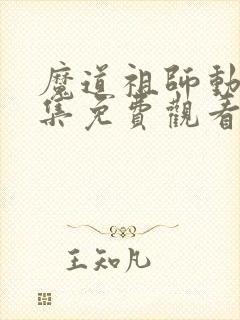 魔道祖師動
集免費觀看
王知凡